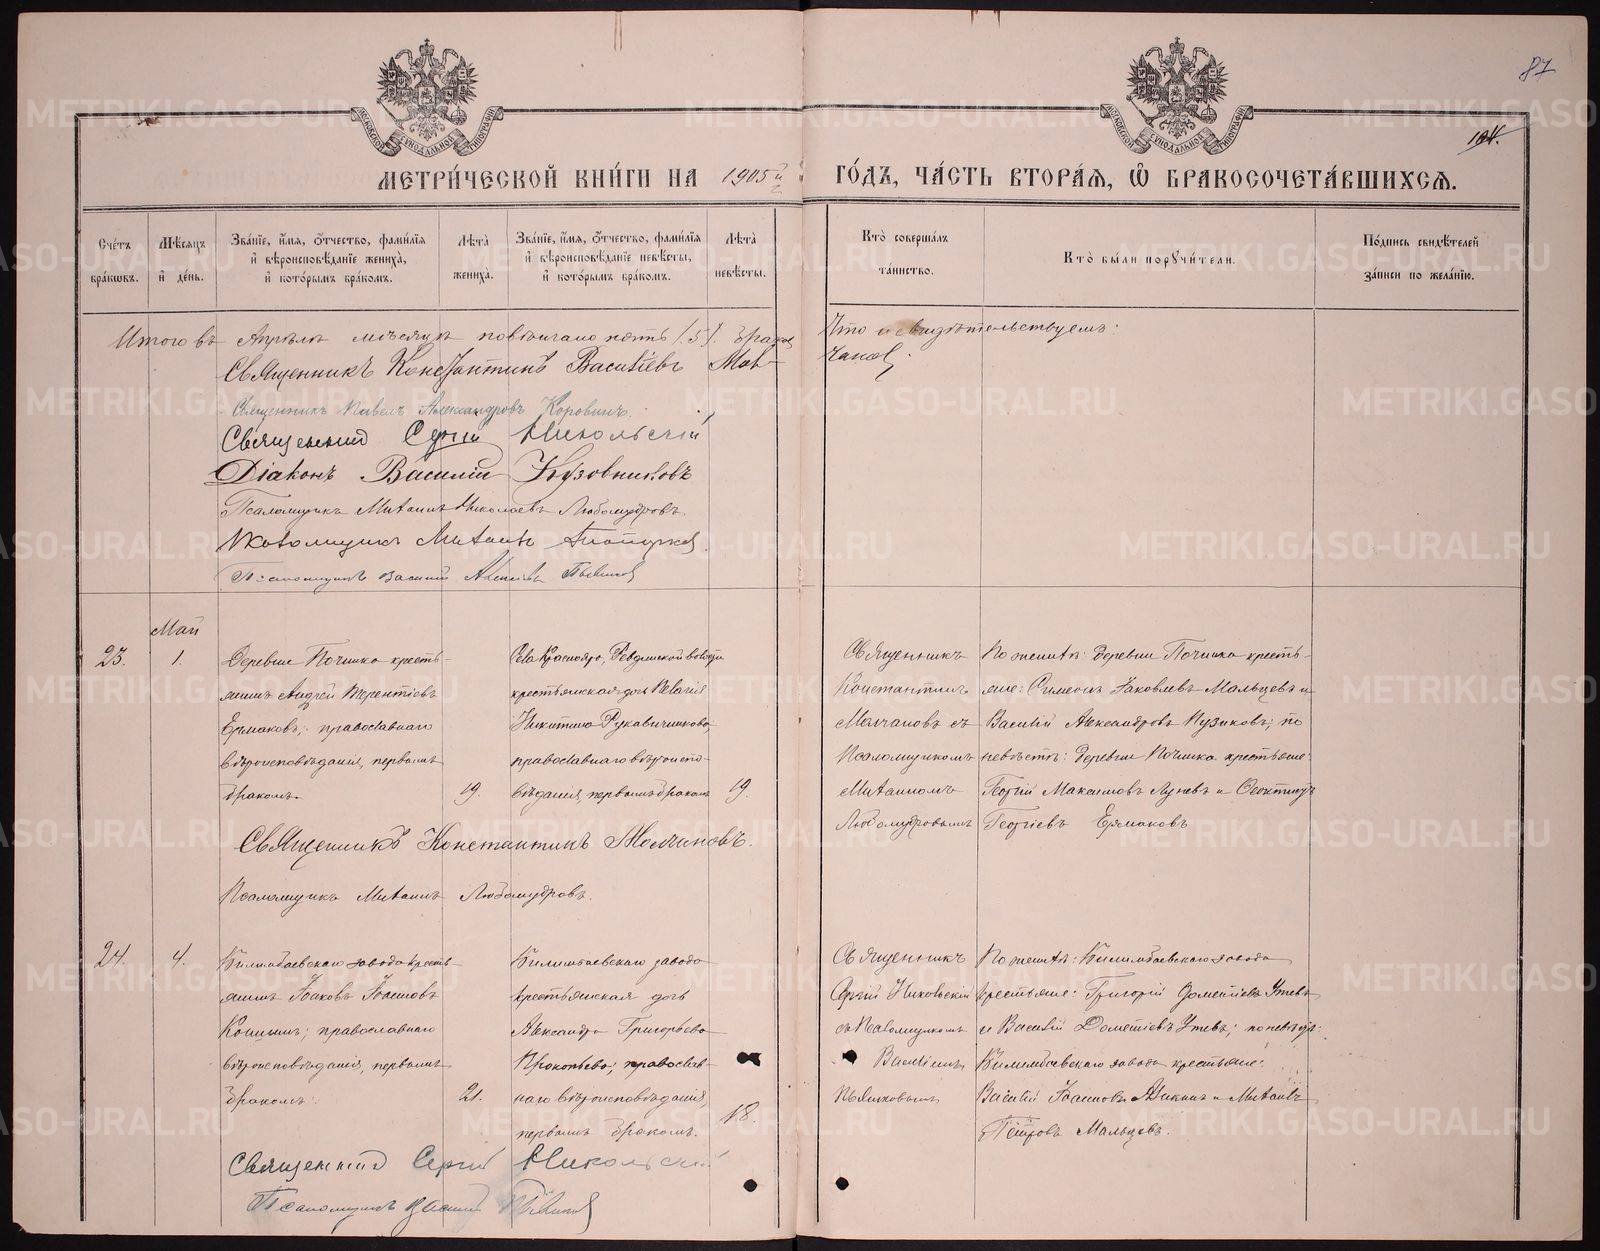 87
104.
МЕТРИ́ЧЕСКОЙ КНИ́ГИ НА 1905й ГО́ДЪ, ЧА́СТЬ ВТОРА́Я, Ѡ БРАКОСОЧЕТА́ВШИХСЯ.
Сче́тъ бра́кѡвъ.
Мѣ́сяцъ и҆ де́нь.
Зва́нїе, и҆́мя, ѻ҆́тчество, фами́лїя и҆ вѣроисповѣ́данїе жениха̀, и҆ кото́рымъ бра́комъ.
Лѣ́та жениха̀.
Зва́нїе, и҆́мя, ѻ҆́тчество, фами́лїя и҆ вѣроисповѣ́данїе невѣ́сты, и҆ кото́рымъ бра́комъ.
Лѣ́та невѣ́сты.
Кто̀ соверша́лъ та́инство.
Кто̀ бы́ли порꙋчи́тели.
По́дпись свидѣ́телей за́писи по жела́нїю.
Итого въ Апрѣлѣ мѣсяцѣ повѣнчано пять /5/ браков
Что и свидѣтельствуемъ:
Священникъ Константинъ Васильевъ Мол-
чановъ.
Священникъ Павелъ Александровъ Коровинъ.
Священникъ Сергій Никольскій
Діаконъ Василій Кузовниковъ
Псаломщикъ Михаилъ Николаевъ Любомудровъ.
Псаломщикъ Михаилъ
Псаломщикъ Василій
Май
23.
1.
Деревни Починка кресть-
янинъ Андрей Терентіевъ
Ермаковъ; православнаго
вѣроисповѣданія, первымъ
бракомъ.
19.
Села Краснояра, Ревдинской волости
крестьянская дочь Пелагія
Никитина Рукавичникова,
православнаго вѣроиспо-
вѣданія, первымъ бракомъ
19.
Священникъ
Константинъ
Молчановъ съ
Псаломщикомъ
Михаиломъ
Любомудровымъ
По женихѣ: деревни Починка кресть-
яне: Симеонъ Яковлевъ Мальцевъ и
Василій Александровъ Пузиковъ; по
невѣстѣ: деревни Починка крестьяне:
Георгій Максимовъ Луневъ и Феоктистъ
Георгіевъ Ермаковъ
Священникъ Константинъ Молчановъ.
Псаломщикъ Михаилъ Любомудровъ.
24.
4.
Билимбаевскаго завода кресть-
янинъ Яковъ Іоанновъ
православнаго
вѣроисповѣданія, первымъ
бракомъ.
21.
Билимбаевскаго завода
крестьянская дочь
Александра Григорьева
Прокопьева; православ-
наго вѣроисповѣданія,
первымъ бракомъ.
18.
Священникъ
Сергій Никольскій
съ Псаломщикомъ
Василіемъ
Пьянковымъ
По женихѣ: Билимбаевскаго завода
крестьяне: Григорій Дометіевъ Утевъ
и Василій Дометіевъ Утевъ; по невѣстѣ:
Билимбаевскаго завода крестьяне:
Василій Іоанновъ и Михаилъ
Петровъ Мальцевъ.
Священникъ Сергій Никольскій
Псаломщикъ Василій Пьянковъ
METRIKI.GASO-URAL.RU